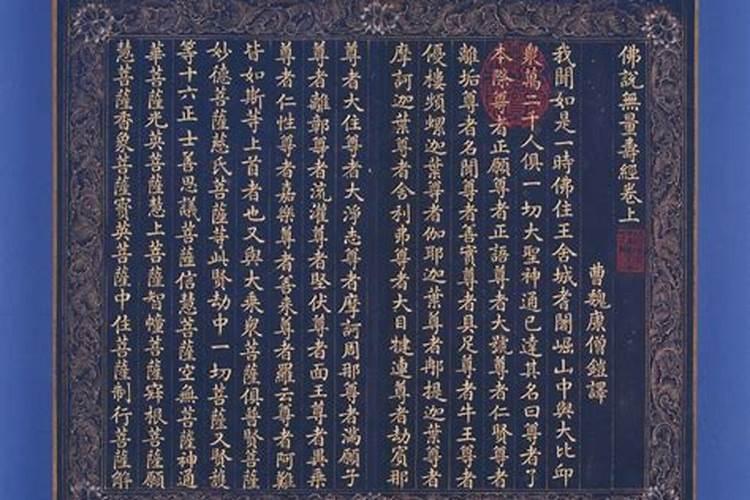 佛說無量壽經卷上
曹魏康僧鎧譯
我聞如是一時佛住王舍城耆闍崛山中與大比邱
衆萬二千人俱一切大聖神通已達其名曰尊者了
本際尊者正願尊者正語尊者大號尊者仁賢尊者
離垢尊者名聞尊者善實尊者具足尊者牛王尊者
優樓頻螺迦葉尊者伽耶迦葉尊者那提迦葉尊者
摩訶迦葉尊者舍利弗尊者大目犍連尊者劫賓那
尊者大住尊者大淨志尊者摩訶周那尊者滿願子
尊者離鄣尊者流灌尊者堅伏尊者面王尊者異乘
尊者仁性尊者嘉樂尊者善來尊者羅云尊者阿難
皆如斯等上首者也又與大乘衆菩薩俱普賢菩薩
妙德菩薩慈氏菩薩等此賢劫中一切菩薩又賢護
等十六正士善思議菩薩信慧菩薩空無菩薩神通
華菩薩光英菩薩慧上菩薩智幢菩薩寂根菩薩願
慧菩薩香象菩薩寶英菩薩中住菩薩制行菩薩解